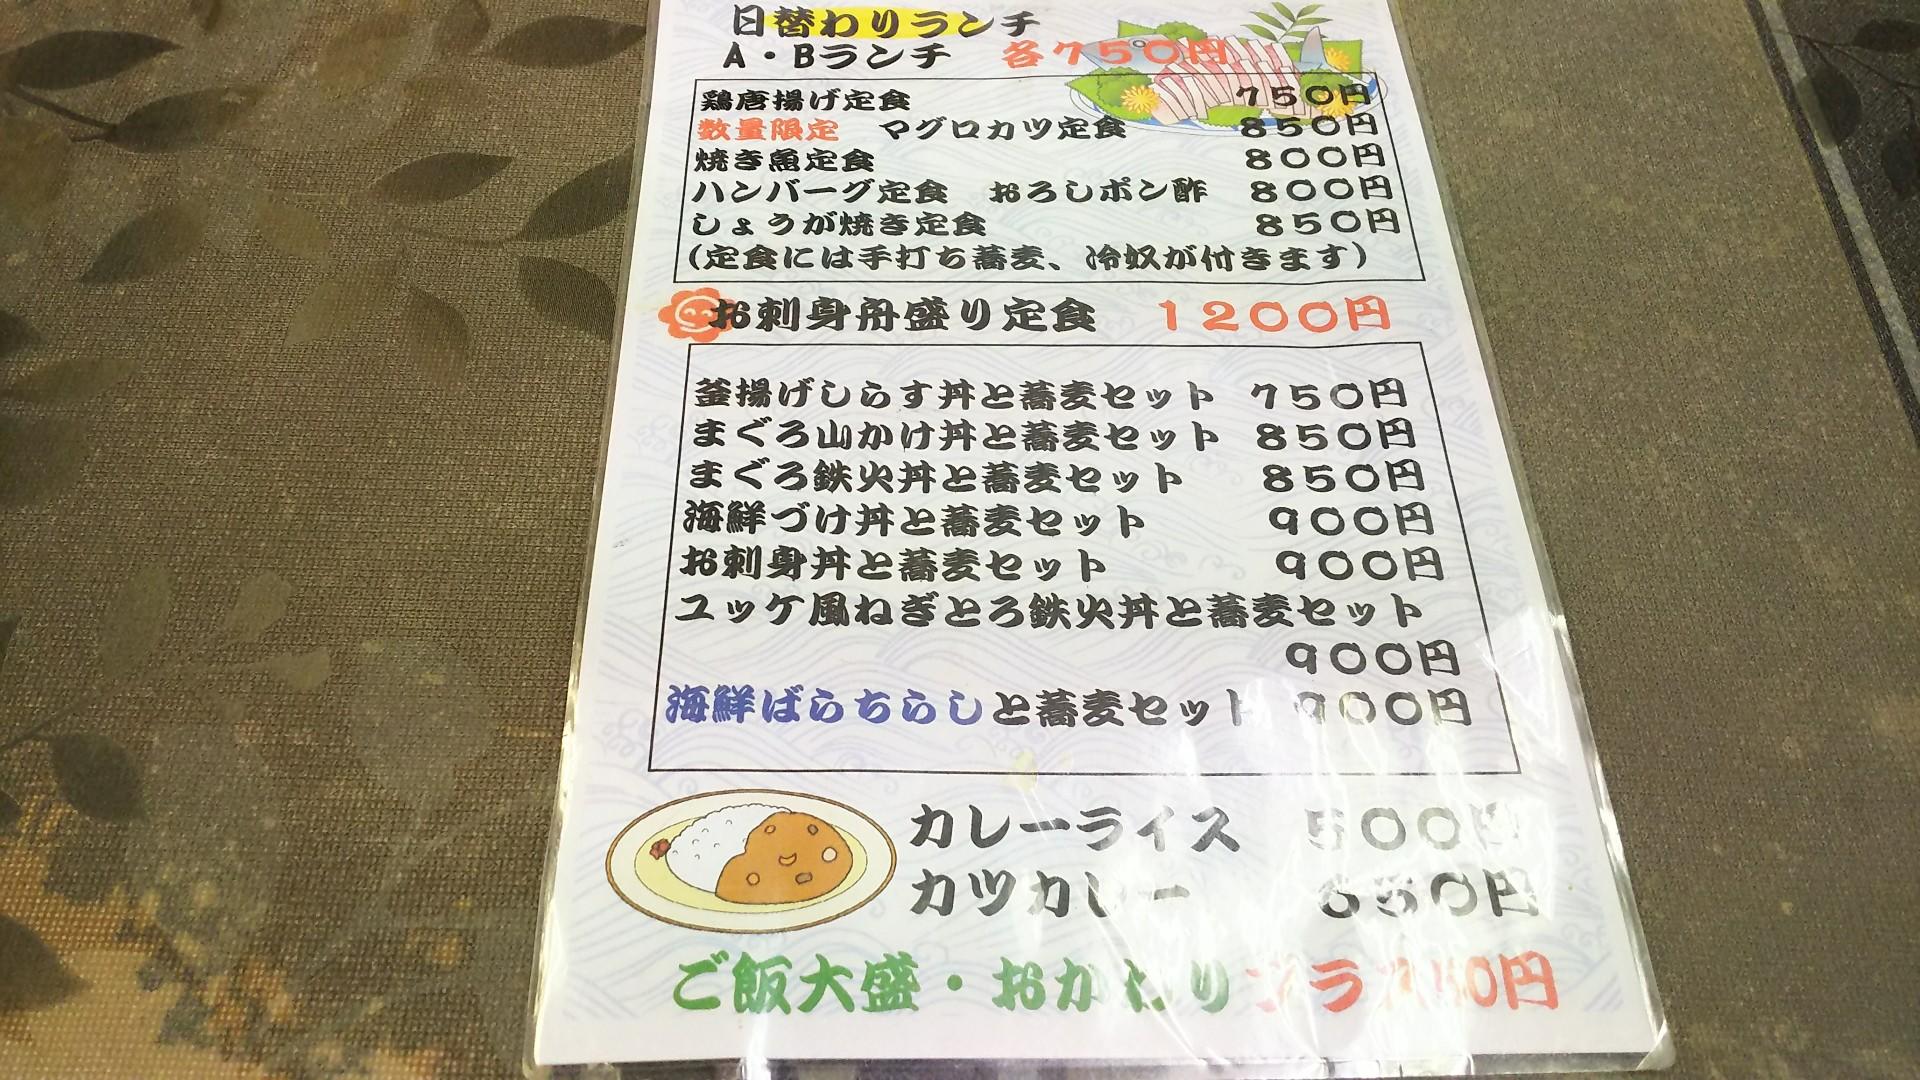 日替わりランチ
A・Bランチ 各750円
鶏唐揚げ定食 750円
数量限定 マグロカツ定食 850円
焼き魚定食 800円
ハンバーグ定食 おろしポン酢 800円
しょうが焼き定食 850円
(定食には手打ち蕎麦、冷奴が付きます)
お刺身舟盛り定食 1200円
釜揚げしらす丼と蕎麦セット 750円
まぐろ山かけ丼と蕎麦セット 850円
まぐろ鉄火丼と蕎麦セット 850円
海鮮づけ丼と蕎麦セット 900円
お刺身丼と蕎麦セット 900円
ユッケ風ねぎとろ鉄火丼と蕎麦セット
900円
海鮮ばらちらしと蕎麦セット 900円
カレーライス 500円
カツカレー
ご飯大盛・おかわり プラス